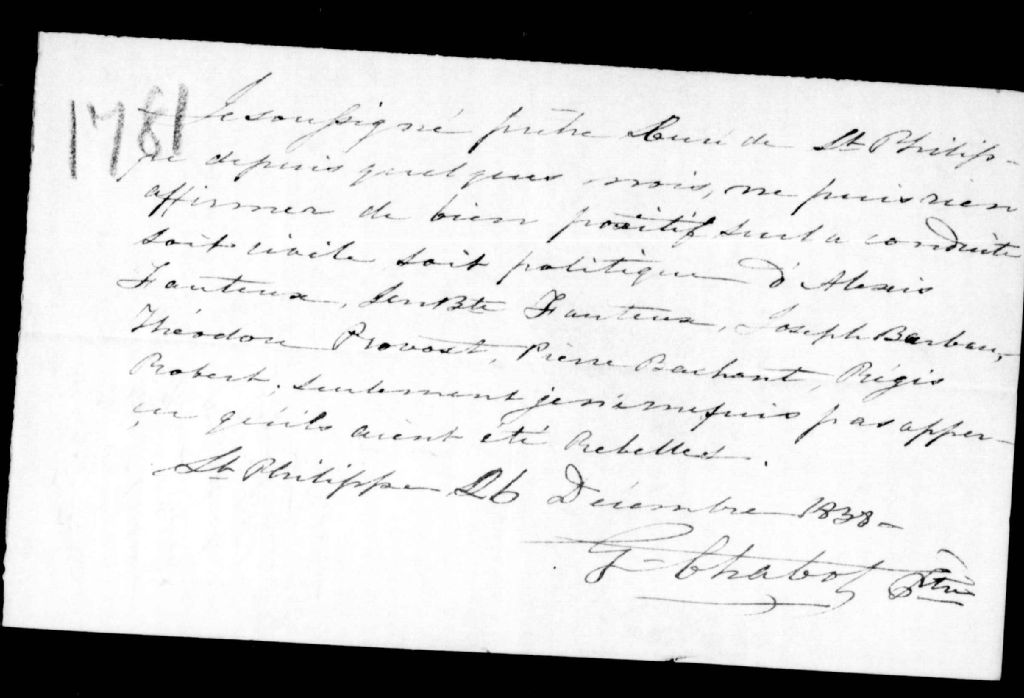 1781
Je soussigné prêtre Curé de St Philip-
pe depuis quelques mois, ne puis rien
affirmer de bien positif sur la conduite
soit civile soit politique d'Alexis
Fauteux, Jen Bte Fauteux, Joseph Barbeau,
Théodore Provost, Pierre Bachant, Régis
Robert; seulement je ne me suis pas apper-
çu qu'ils aient été Rebelles.
St Philippe 26 Décembre 1838 -
G- Chabot Ptre